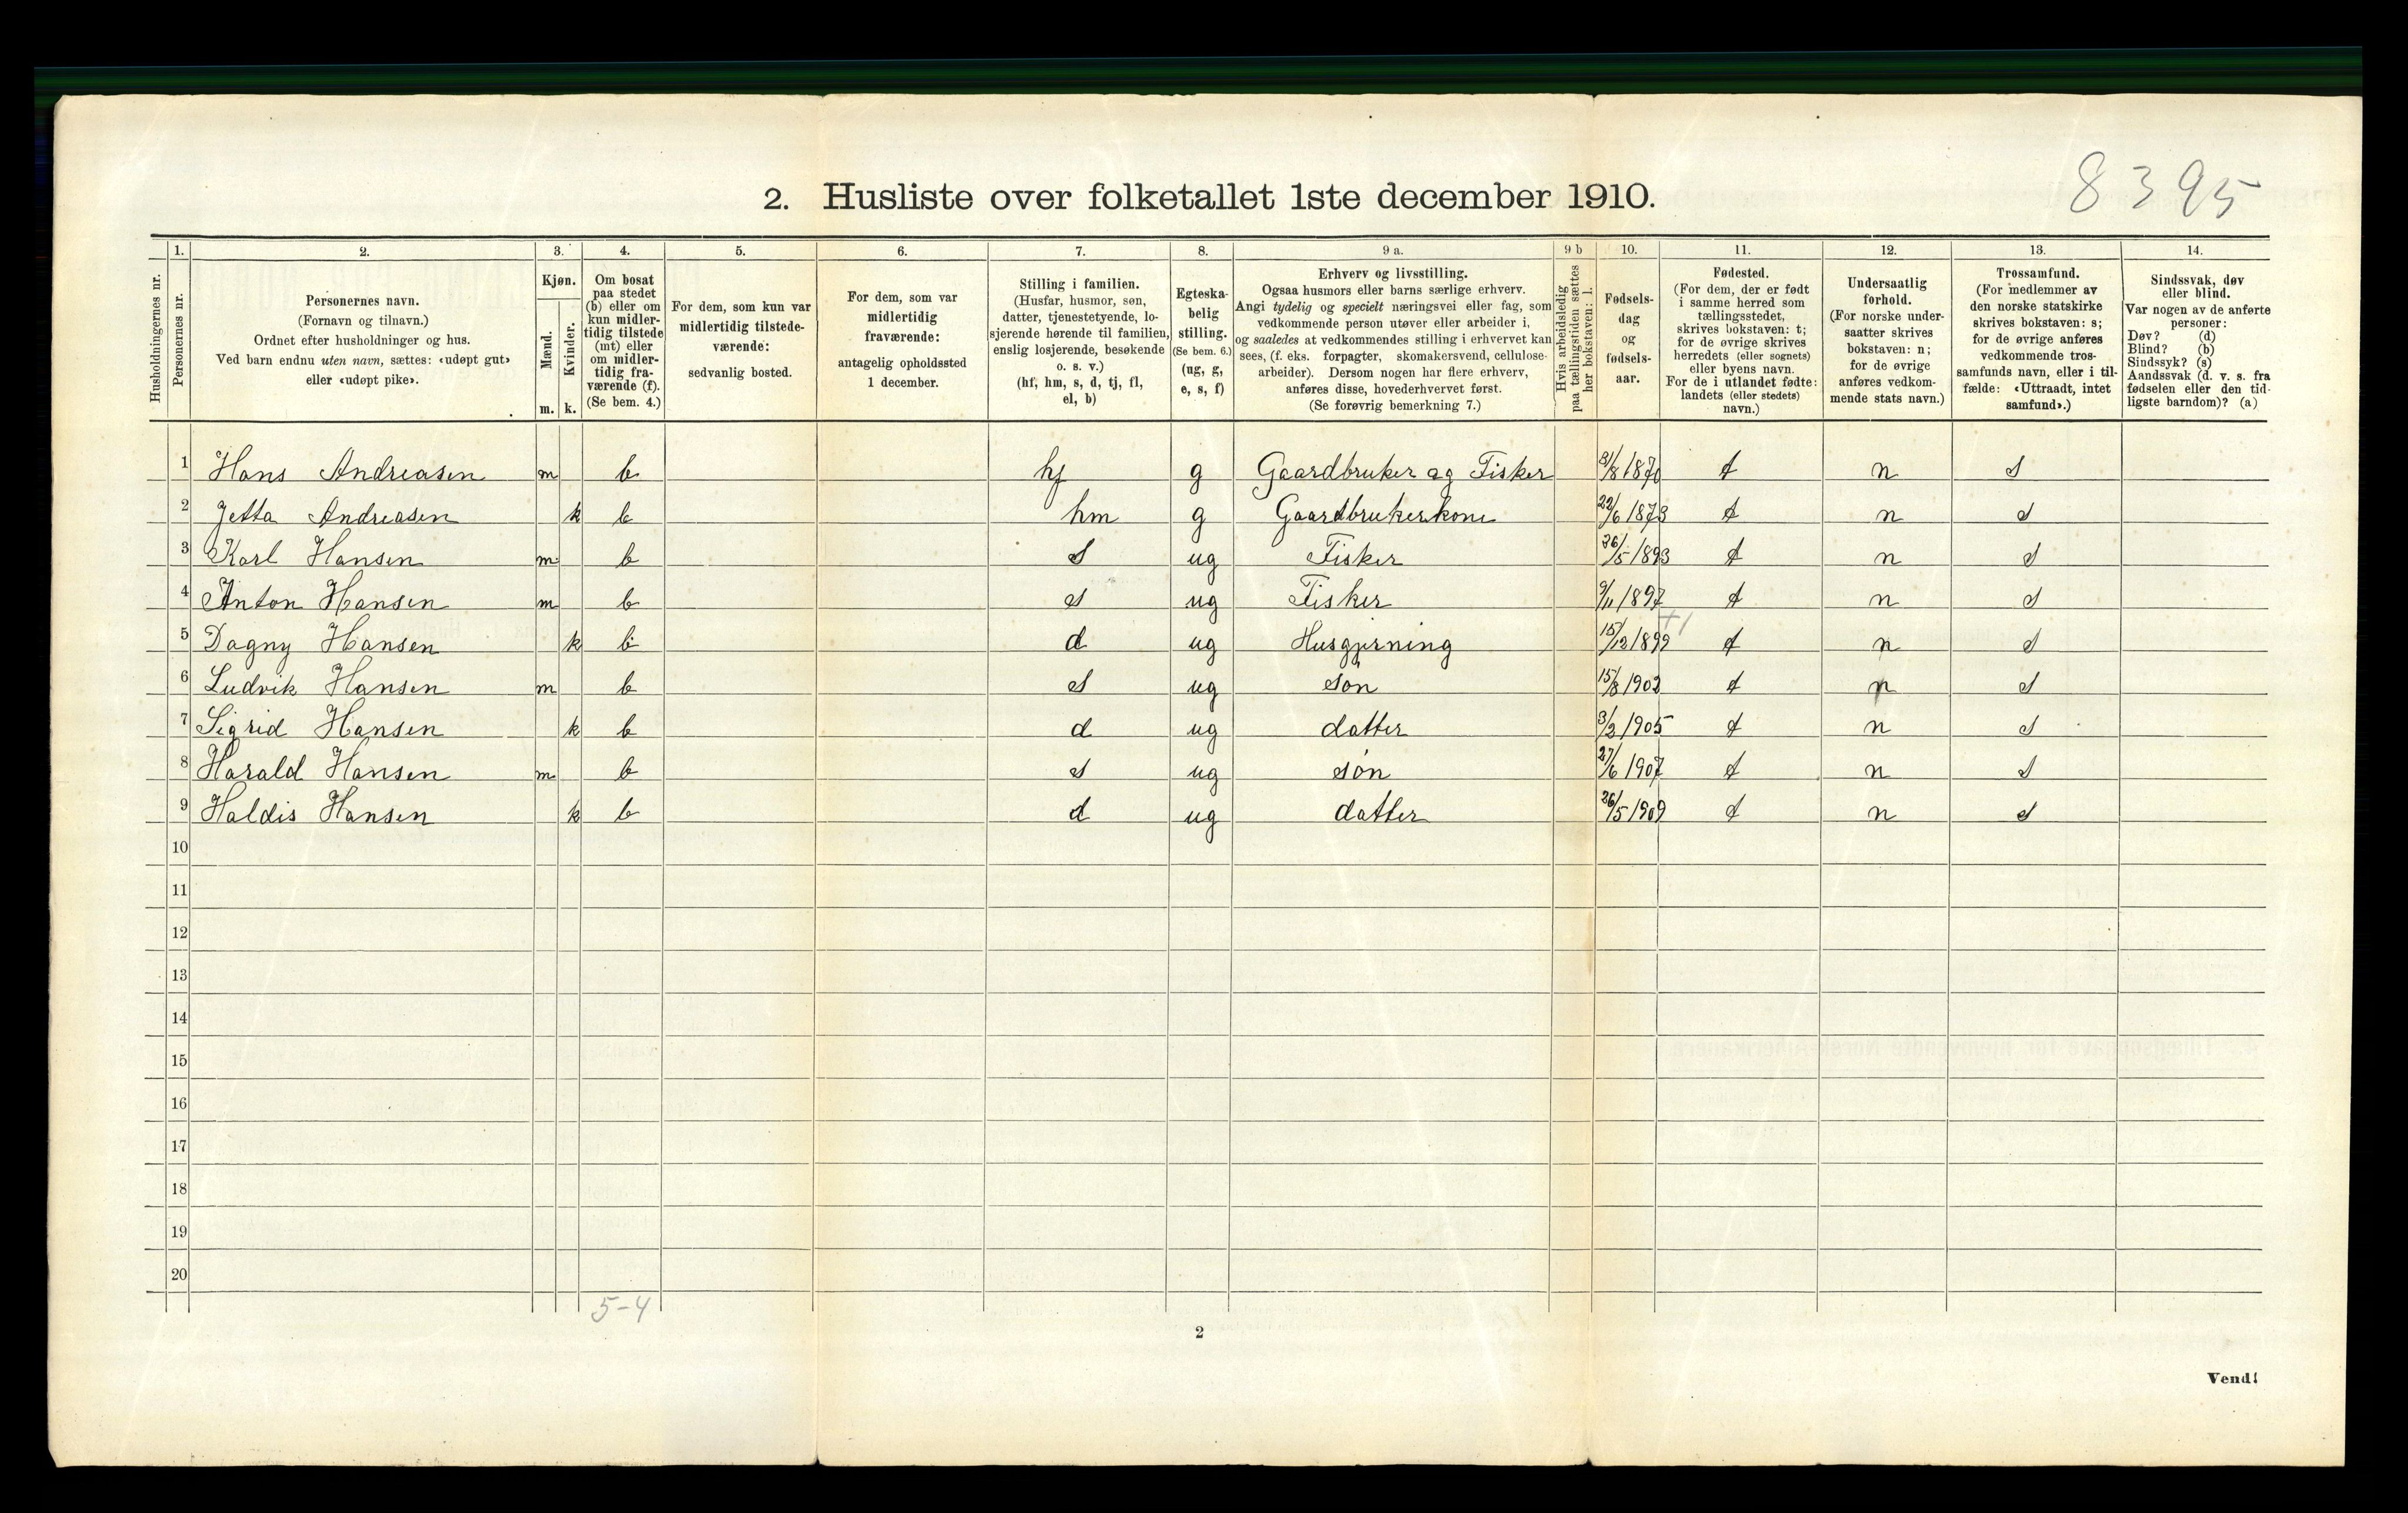 8395
2. Husliste over folketallet 1ste december 1910.
1. 2. 3. 4. 5. 6. 7. 8. 9 a. 9 b 10. 11. 12. 13. 14.
Husholdningernes nr.
Personernes nr.
Personernes navn.
(Fornavn og tilnavn.)
Ordnet efter husholdninger og hus.
Ved barn endnu uten navn, sættes: «udøpt gut»
eller «udøpt pike».
Kjøn.
Mænd.
Kvinder.
m. k.
Om bosat
paa stedet
(b) eller om
kun midler-
tidig tilstede
(mt) eller
om midler-
tidig fra-
værende (f).
(Se bem. 4.)
For dem, som kun var
midlertidig tilstede-
værende:
sedvanlig bosted.
For dem, som var
midlertidig
fraværende:
antagelig opholdssted
1 december.
Stilling i familien.
(Husfar, husmor, søn,
datter, tjenestetyende, lo-
sjerende hørende til familien,
enslig losjerende, besøkende
o. s. v.)
(hf, hm, s, d, tj, fl,
el, b)
Egteska-
belig
stilling.
(Se bem. 6.)
(ug, g,
e, s, f)
Erhverv og livsstilling.
Ogsaa husmors eller barns særlige erhverv.
Angi tydelig og specielt næringsvei eller fag, som
vedkommende person utøver eller arbeider i,
og saaledes at vedkommendes stilling i erhvervet kan
sees, (f. eks. forpagter, skomakersvend, cellulose-
arbeider). Dersom nogen har flere erhverv,
anføres disse, hovederhvervet først.
(Se forøvrig bemerkning 7.)
Hvis arbeidsledig
paa tællingstiden sættes
her bokstaven: l.
Fødsels-
dag
og
fødsels-
aar.
Fødested.
(For dem, der er født
i samme herred som
tællingsstedet,
skrives bokstaven: t;
for de øvrige skrives
herredets (eller sognets)
eller byens navn.
For de i utlandet fødte:
landets (eller stedets)
navn.)
Undersaatlig
forhold.
(For norske under-
saatter skrives
bokstaven: n;
for de øvrige
anføres vedkom-
mende stats navn.)
Trossamfund.
(For medlemmer av
den norske statskirke
skrives bokstaven: s;
for de øvrige anføres
vedkommende tros-
samfunds navn, eller i til-
fælde: «Uttraadt, intet
samfund».)
Sindssvak, døv
eller blind.
Var nogen av de anførte
personer:
Døv? (d)
Blind? (b)
Sindssyk? (s)
Aandssvak (d. v. s. fra
fødselen eller den tid-
ligste barndom)? (a)
1 Hans Andreasen m b hf g Gaardbruker og Fisker /8 1870 t n s
2 Jetta Andreasen k b hm g Gaardbrukerkone 22/6 1873 t n s
3 Karl Hansen m b s ug Fisker 26/5 1893 t n s
4 Anton Hansen m b s ug Fisker 9/11 1897 t n s
5 Dagny Hansen k b d ug Husgjerning 15/12 1899 t n s
6 Ludvik Hansen m b s ug søn 15/8 1902 t n s
7 Sigrid Hansen k b d ug datter 3/2 1905 t n s
8 Harald Hansen m b s ug søn 27/6 1907 t n s
9 Haldis Hansen k b d ug datter 26/5 1909 t n s
10
11
12
13
14
15
16
17
18
19
20
5-4
2
Vend!